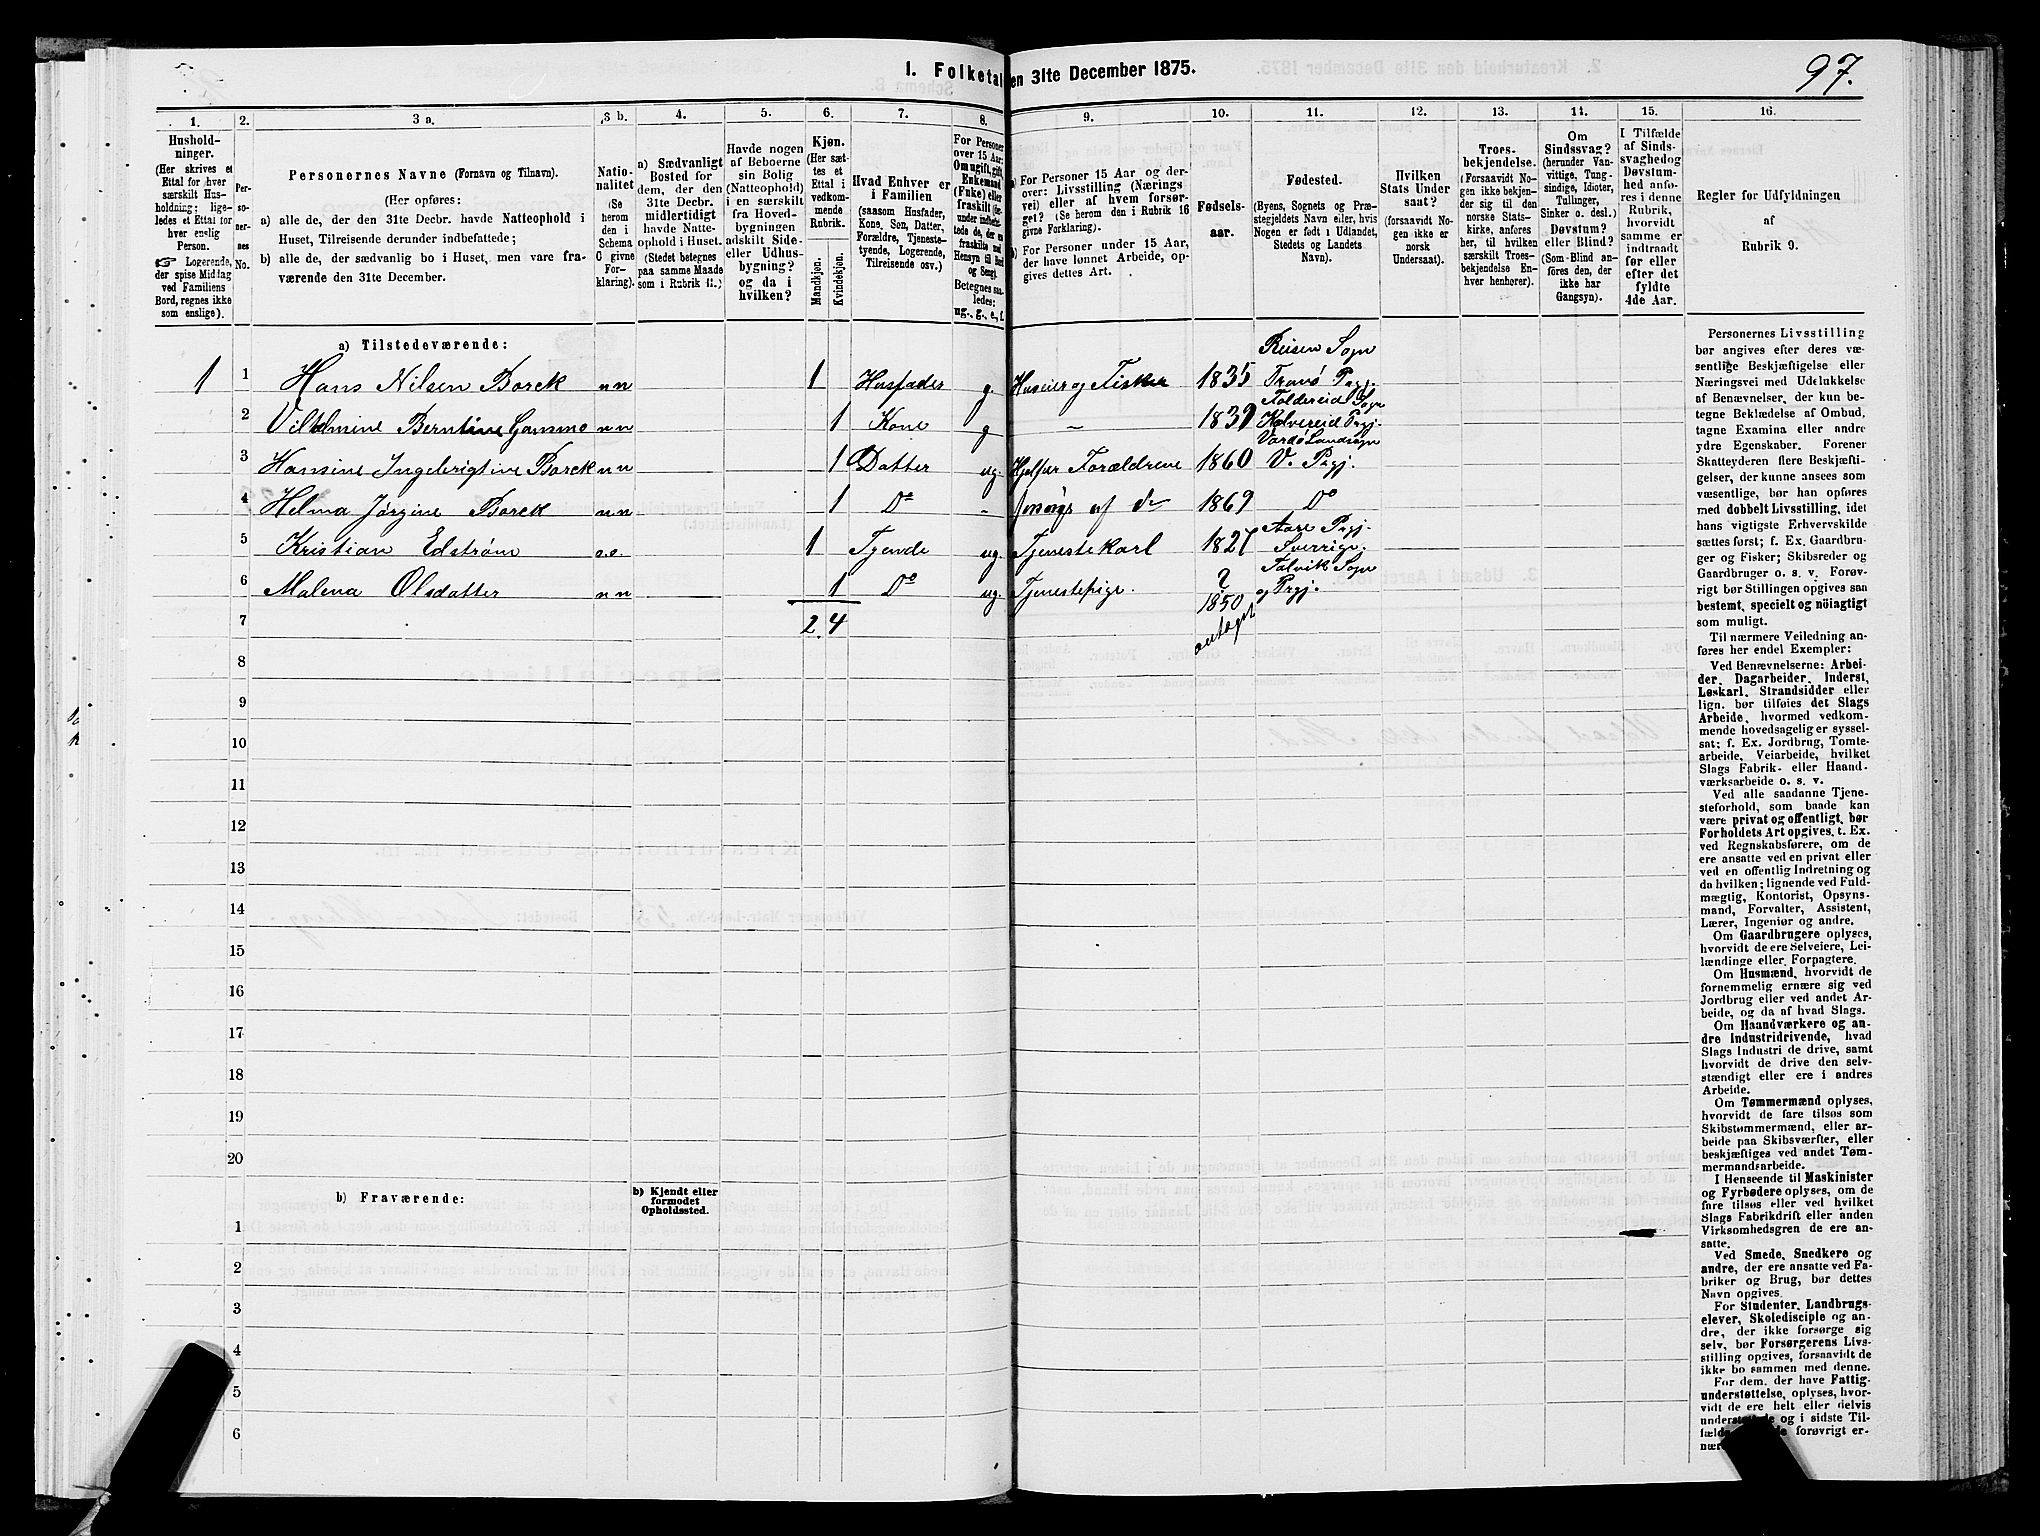 97.
1. Folketal
en 31te December 1875.
1.
Hushold-
ninger.
(Her skrives et
Ettal for hver
særskilt Hus-
holdning; lige-
ledes et Ettal for
hver enslig
Person.
☞ Logerende,
der spise Middag
ved Familiens
Bord, regnes ikke
som enslige).
2.
Per-
so-
ner-
nes
No.
3 a.
Personernes Navne (Fornavn og Tilnavn).
(Her opføres:
a) alle de, der den 31te Decbr. havde Natteophold i
Huset, Tilreisende derunder indbefattede;
b) alle de, der sædvanlig bo i Huset, men vare fra-
værende den 31te December.
3 b.
Natio-
nalitet
(Se
herom
den i
Schema
C givne
For-
klaring).
4.
a) Sædvanligt
Bosted for
dem, der den
31te Decbr.
midlertidigt
havde Natte-
ophold i Huset.
(Stedet betegnes
paa samme Maade
som i Rubrik 11.)
5.
Havde nogen
af Beboerne
sin Bolig
(Natteophold)
i en særskilt
fra Hoved-
bygningen
adskilt Side-
eller Udhus-
bygning?
og da i
hvilken?
6.
Kjøn.
(Her sæt-
tes et
Ettal i
vedkom-
mende
Rubrik.
Mandkjøn.
Kvindekjøn.
7.
Hvad Enhver er
i Familien
(saasom Husfader,
Kone, Søn, Datter,
Forældre, Tjeneste-
tyende, Logerende,
Tilreisende osv.)
8.
For Personer
over 15 Aar:
Om ugift, gift,
Enkemand
(Enke) eller
fraskilt
Betegnes saa-
ledes:
ug., g., e., f.
9.
a) For Personer 15 Aar og der-
over: Livsstilling (Nærings
vei) eller af hvem forsør-
get? (Se herom den i Rubrik 16
givne Forklaring).
b) For Personer under 15 Aar,
der have lønnet Arbeide, op-
gives dettes Art.
10.
Fødsels-
aar.
11.
Fødested.
(Byens, Sognets og Præ-
stegjeldets Navn eller, hvis
Nogen er født i Udlandet,
Stedets og Landets
Navn).
12.
Hvilken
Stats Under
saat?
(forsaavidt No-
gen ikke er
norsk
Undersaat).
13.
Troes-
bekjendelse.
(Forsaavidt No-
gen ikke bekjen-
der sig til den
norske Stats-
kirke, anføres
her, til hvilken
særskilt Troes-
bekjendelse En-
hver henhører).
14.
Om
Sindssvag?
(herunder Van-
vittige, Tung-
sindige, Idioter,
Tullinger,
Sinker o. desl.)
Døvstum?
eller Blind?
(Som Blind an-
føres den, der
ikke har
Gangsyn).
15.
I Tilfælde
af Sinds-
svaghed og
Døvstum-
hed anfø-
res i denne
Rubrik,
hvorvidt
samme er
indtraadt
før eller
efter det
fyldte
4de Aar.
16.
Regler for Udfyldningen
af
Rubrik 9.
a) Tilstedeværende:
Reisen Sogn
1 1 Hans Nilsen Borck nn 1 Husfader g Huseier og Fisker 1835 Tranø Prgj.
Foldereid Sogn
2 Vilhelmine Berntine Gammo nn 1 Kone g – 1839 Kolvereid Prgj.
Vardø Landsogn
3 Hansine Ingebrigtine Borck nn 1 Datter ug. Hjelper Forældrene 1860 V. Prgj.
4 Helma Jørgine Borck nn 1 Do - forsørgs af do 1869 Do
Aare Prgj.
5 Kristian Edstrøm o.o. 1 Tyende ug. Tjenestekarl 1827 Sverrige.
Talvik Sogn
6 Malena Olsdatter nn 1 Do ug. Tjenestepige. ? og Prgj.
1850
antaget
7 2. 4
8
9
10
11
12
13
14
15
16
17
18
19
20
b) Fraværende:
b) Kjendt eller
formodet
Opholdssted.
1
2
3
4
5
6
Personernes Livsstilling
bør angives efter deres væ-
sentlige Beskjæftigelse eller
Næringsvei med Udelukkelse
af Benævnelser, der kun be-
tegne Beklædelse af Ombud,
tagne Examina eller andre
ydre Egenskaber. Forener
Skatteyderen flere Beskjæfti-
gelser, der kunne ansees som
væsentlige, bør han opføres
med dobbelt Livsstilling, idet
hans vigtigste Erhvervskilde
sættes først; f. Ex. Gaardbru-
ger og Fisker; Skibsreder og
Gaardbruger o. s. v. Forøv-
rigt bør Stillingen opgives saa
bestemt, specielt og nöiagtigt
som muligt.
Til nærmere Veiledning an-
føres her endel Exempler:
Ved Benævnelserne: Arbei-
der, Dagarbeider, Inderst,
Løskarl, Strandsidder eller
lign. bør tilføies det Slags
Arbeide, hvormed vedkom-
mende hovedsagelig er syssel-
sat; f. Ex. Jordbrug, Tomte-
arbeide, Veiarbeide, hvilket
Slags Fabrik- eller Haand-
værksarbeide o. s. v.
Ved alle saadanne Tjene-
steforhold, som baade kan
være privat og offentligt, bør
Forholdets Art opgives, t. Ex.
ved Regnskabsførere, om de
ere ansatte ved en privat eller
ved en offentlig Indretning og
da hvilken; lignende ved Fuld-
mægtig, Kontorist, Opsyns-
mand, Forvalter, Assistent,
Lærer, Ingeniør og andre.
Om Gaardbrugere oplyses,
hvorvidt de ere Selveiere, Lei-
lændinge eller Forpagtere.
Om Husmænd, hvorvidt de
fornemmelig ernære sig ved
Jordbrug eller ved andet Ar-
beide, og da af hvad Slags.
Om Haandværkere og an-
dre Industridrivende, hvad
Slags Industri de drive, samt
hvorvidt de drive den selv-
stændigt eller ere i andres
Arbeide.
Om Tømmermænd oplyses,
hvorvidt de fare tilsøs som
Skibstømmermænd, eller ar-
beide paa Skibsværfter, eller
beskjæftiges ved andet Tøm-
mermandsarbeide.
I Henseende til Maskinister
og Fyrbødere oplyses, om de
fare tilsøs eller ved hvilket
Slags Fabrikdrift eller anden
Virksomhedsgren de ere an-
satte.
Ved Smede, Snedkere og
andre, der ere ansatte ved Fa-
briker og Brug, bør dettes
Navn opgives.
For Studenter, Landbrugs-
elever, Skoledisciple og an-
dre, der ikke forsørge sig
selv, bør Forsørgerens Livs-
stilling opgives, forsaavidt de
ikke bo sammen med denne.
For dem, der have Fattig-
understøttelse, oplyses, hvor-
vidt de ere helt eller delvis
og i sidste Til-
forøvrigt er-